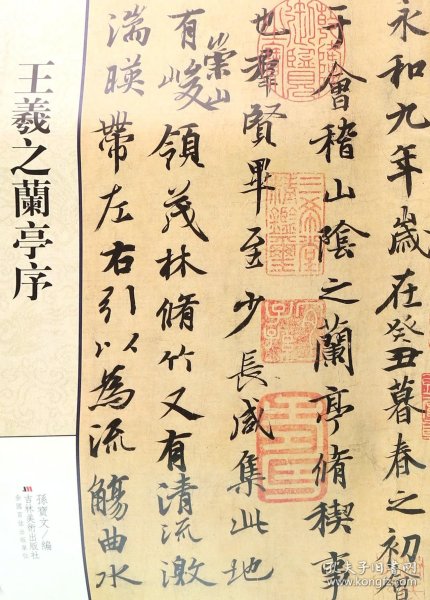 永和九年歲在癸丑暮春之初會
于會稽山陰之蘭亭脩稧事
也羣賢畢至少長咸集此地
有崇山峻領茂林脩竹又有清流激
湍暎帶左右引以為流觴曲水
王羲之蘭亭序
孫寶文/編
吉林美術出版社
孔夫子旧书网
www.kongfz.com